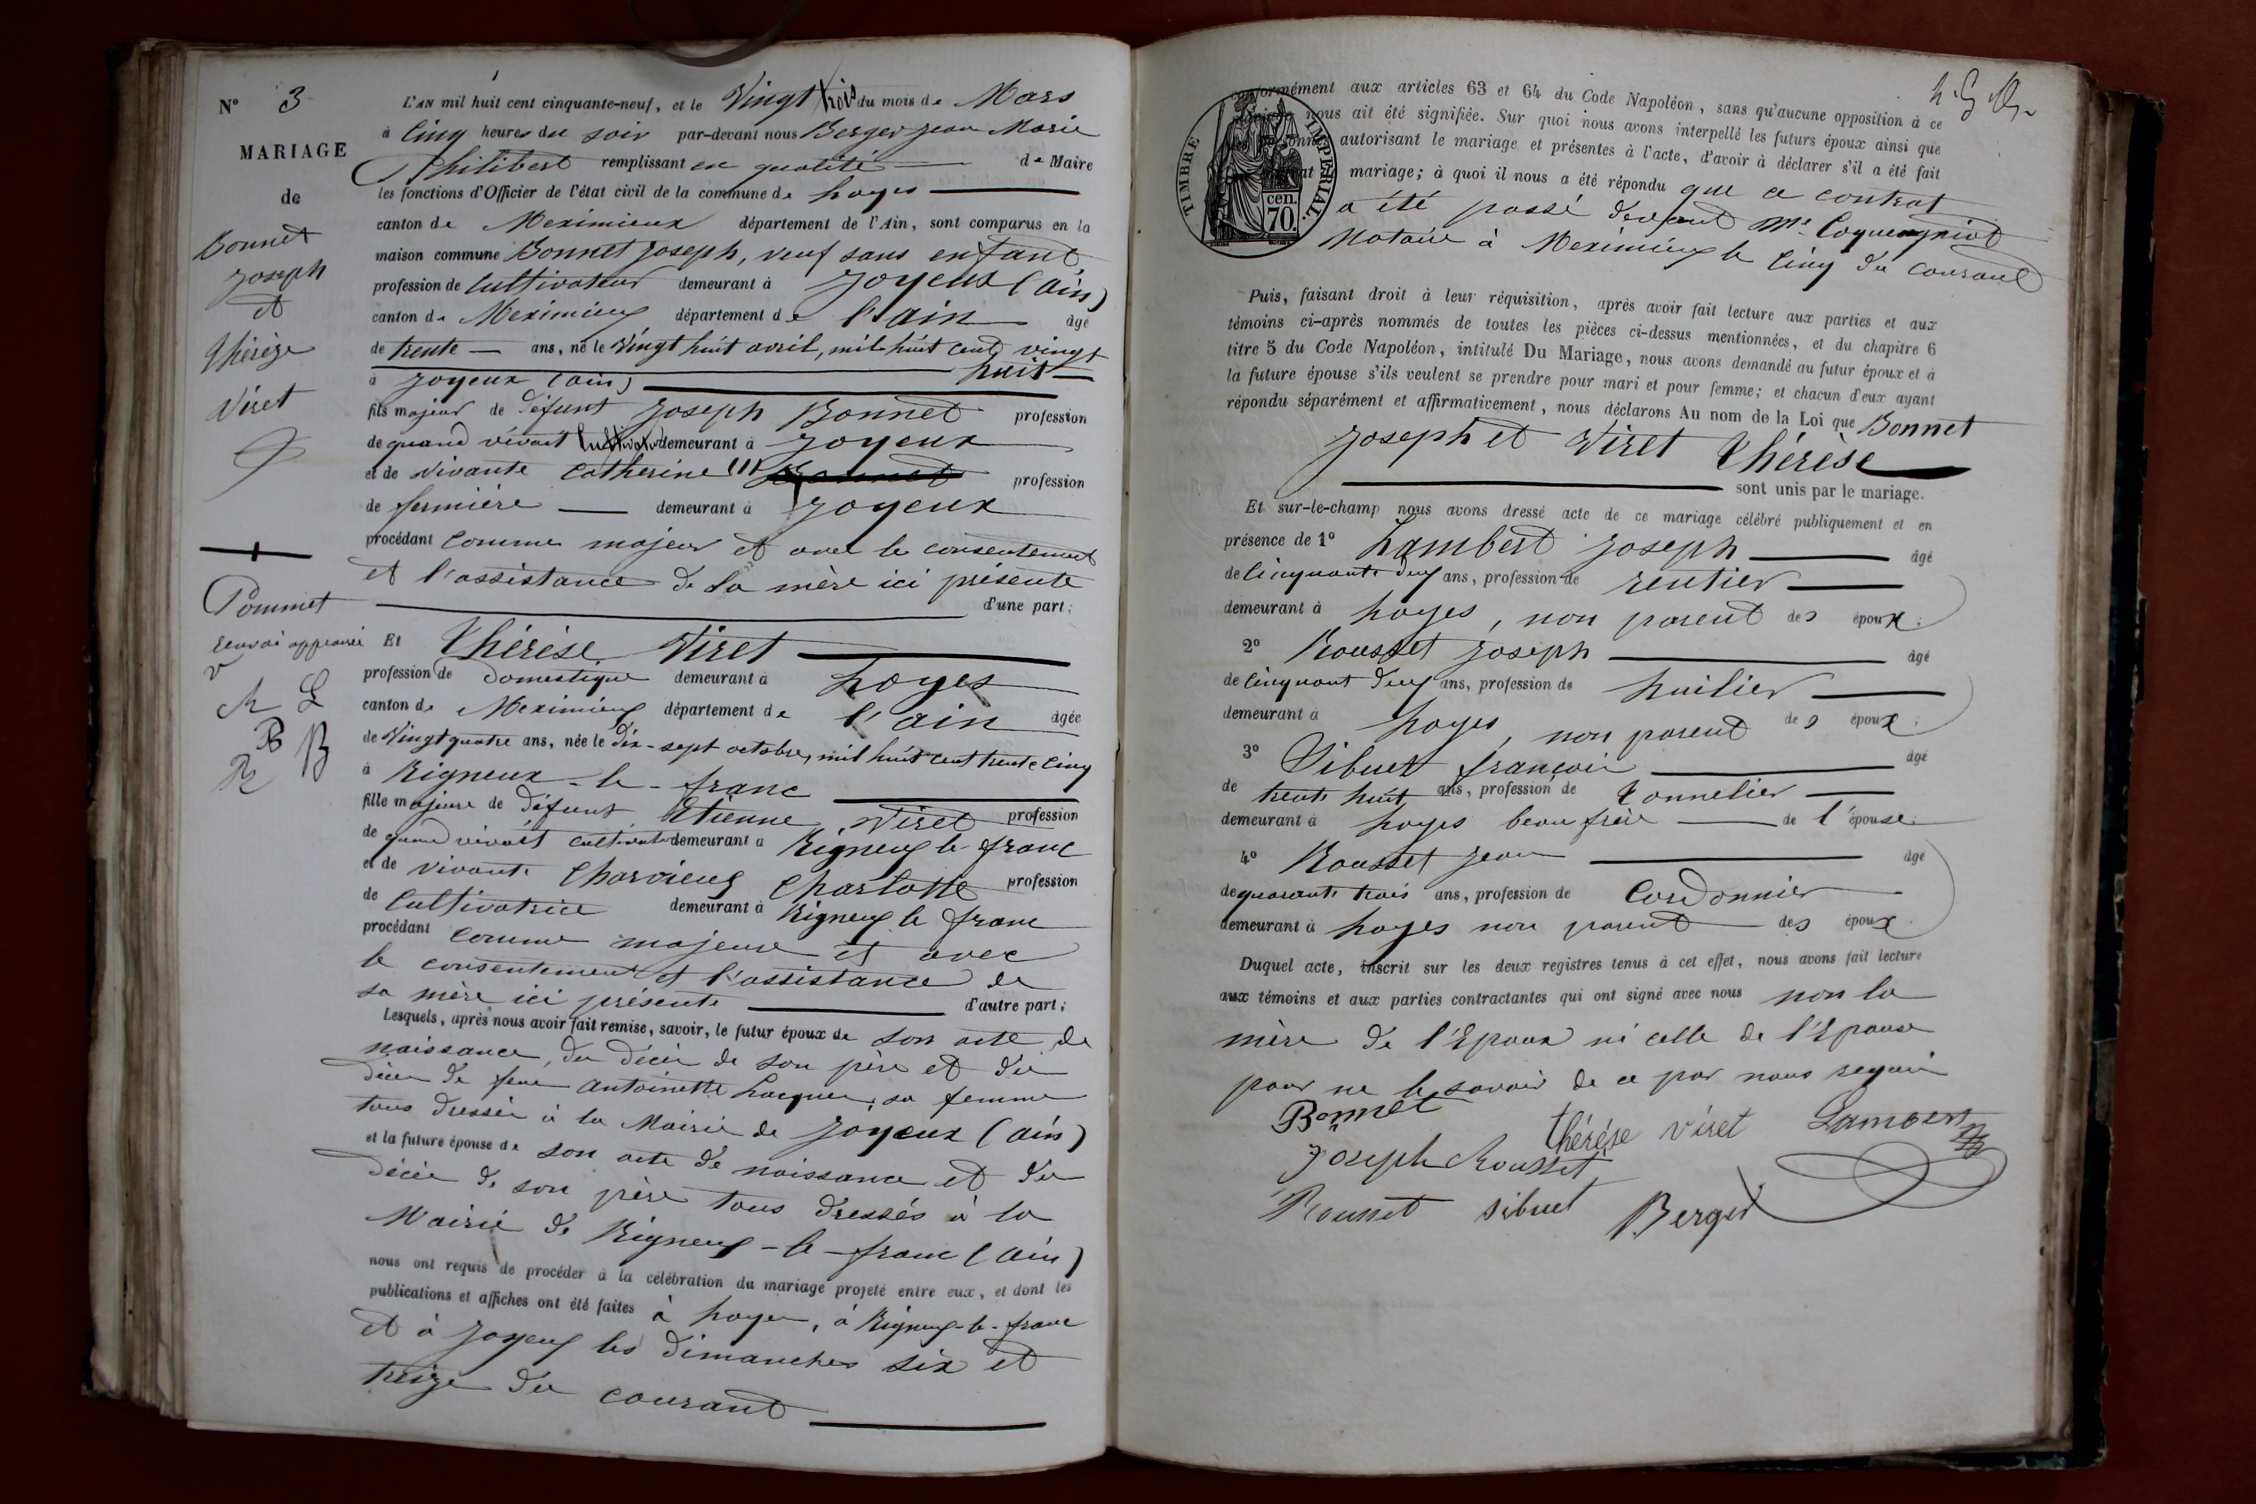 N° 3
MARIAGE
de
Bonnet
Joseph
et
Thérèze
Viret
Pommet
renvoi approuvé
L'AN mil huit cent cinquante-neuf, et le Vingt trois du mois de Mars
à Cinq heures du soir par-devant nous Berger Jean Marie
Philibert remplissant en qualité de Maire
les fonctions d'Officier de l'état civil de la commune de Loyes
canton de Meximieux département de l'Ain, sont comparus en la
maison commune Bonnet Joseph, veuf sans enfant
profession de Cultivateur demeurant à Joyeux (ain)
canton de Meximieux département de l'ain âgé
de trente ans, né le Vingt huit avril, mil huit cent vingt
huit
à Joyeux (ain)
fils majeur de défunt Joseph Bonnet profession
de quand vivait Cultivateur demeurant à Joyeux
et de vivante Catherine (1) profession
de fermière demeurant à Joyeux
procédant comme majeur et avec le consentement
et l'assistance de sa mère ici présente
d'une part;
Et Thérèse Viret
profession de Domestique demeurant à Loyes
canton de Meximieux département de l'ain âgée
de Vingt quatre ans, née le dix-sept octobre, mil huit cent trente cinq
à Rigneux-le-franc
fille majeure de défunt Etienne Viret profession
de quand vivait cultivateur demeurant à Rigneux le franc
et de vivante Charvieux Charlotte profession
de Cultivatrice demeurant à Rigneux le franc
procédant comme majeure et avec
le consentement et l'assistance de
sa mère ici présente d'autre part;
Lesquels, après nous avoir fait remise, savoir, le futur époux de son acte de
naissance, du décès de son père et du
décès de feue Antoinette sa femme
tous dressés à la Mairie de Joyeux (ain)
et la future épouse de son acte de naissance et du
décès de son père tous dressés à la
Mairie de Rigneux-le-franc (ain)
nous ont requis de procéder à la célébration du mariage projeté entre eux, et dont les
publications et affiches ont été faites à Loyes, à Rigneux-le-franc
et à Joyeux les dimanches six et
treize du courant
TIMBRE IMPERIAL.
cen.
70.
conformément aux articles 63 et 64 du Code Napoléon, sans qu'aucune opposition à ce
mariage nous ait été signifiée. Sur quoi nous avons interpellé les futurs époux ainsi que
les personnes autorisant le mariage et présentes à l'acte, d'avoir à déclarer s'il a été fait
contrat mariage; à quoi il nous a été répondu que ce contrat
a été passé devant Me
Notaire à Meximieux le Cinq du courant
Puis, faisant droit à leur réquisition, après avoir fait lecture aux parties et aux
témoins ci-après nommés de toutes les pièces ci-dessus mentionnées, et du chapitre 6
titre 5 du Code Napoléon, intitulé Du Mariage, nous avons demandé au futur époux et à
la future épouse s'ils veulent se prendre pour mari et pour femme; et chacun d'eux ayant
répondu séparément et affirmativement, nous déclarons Au nom de la Loi que Bonnet
Joseph et Viret Thérèse
sont unis par le mariage.
Et sur-le-champ nous avons dressé acte de ce mariage célébré publiquement et en
présence de 1° Lambert Joseph âgé
de Cinquante deux ans, profession de rentier
demeurant à Loyes, non parent des époux;
2° Rousset Joseph âgé
de Cinquant deux ans, profession de huilier
demeurant à Loyes, non parent des époux;
3° Sibuet françois âgé
de trente huit ans, profession de tonnelier
demeurant à Loyes beau frère de l'épouse;
4° Rousset Jean âgé
de quarante trois ans, profession de Cordonnier
demeurant à Loyes non parent des époux.
Duquel acte, inscrit sur les deux registres tenus à cet effet, nous avons fait lecture
aux témoins et aux parties contractantes qui ont signé avec nous non la
mère de l'Epoux ni celle de l'Epouse
pour ne le savoir de ce par nous requis
Bonnet
thérése viret Lambert
Joseph Rousset
Rousset sibuet Berger